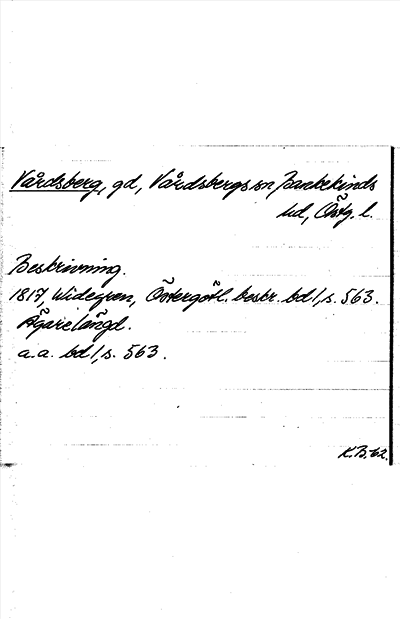 Vårdsberg, gd, Vårdsbergs sn Bankekinds
hd, Östg. l.
Beskrivning.
1817, Widegren, Östergötl. beskr. bd 1, s. 563.
Ägarelängd.
a.a. bd 1, s. 563.
K.B. 62.